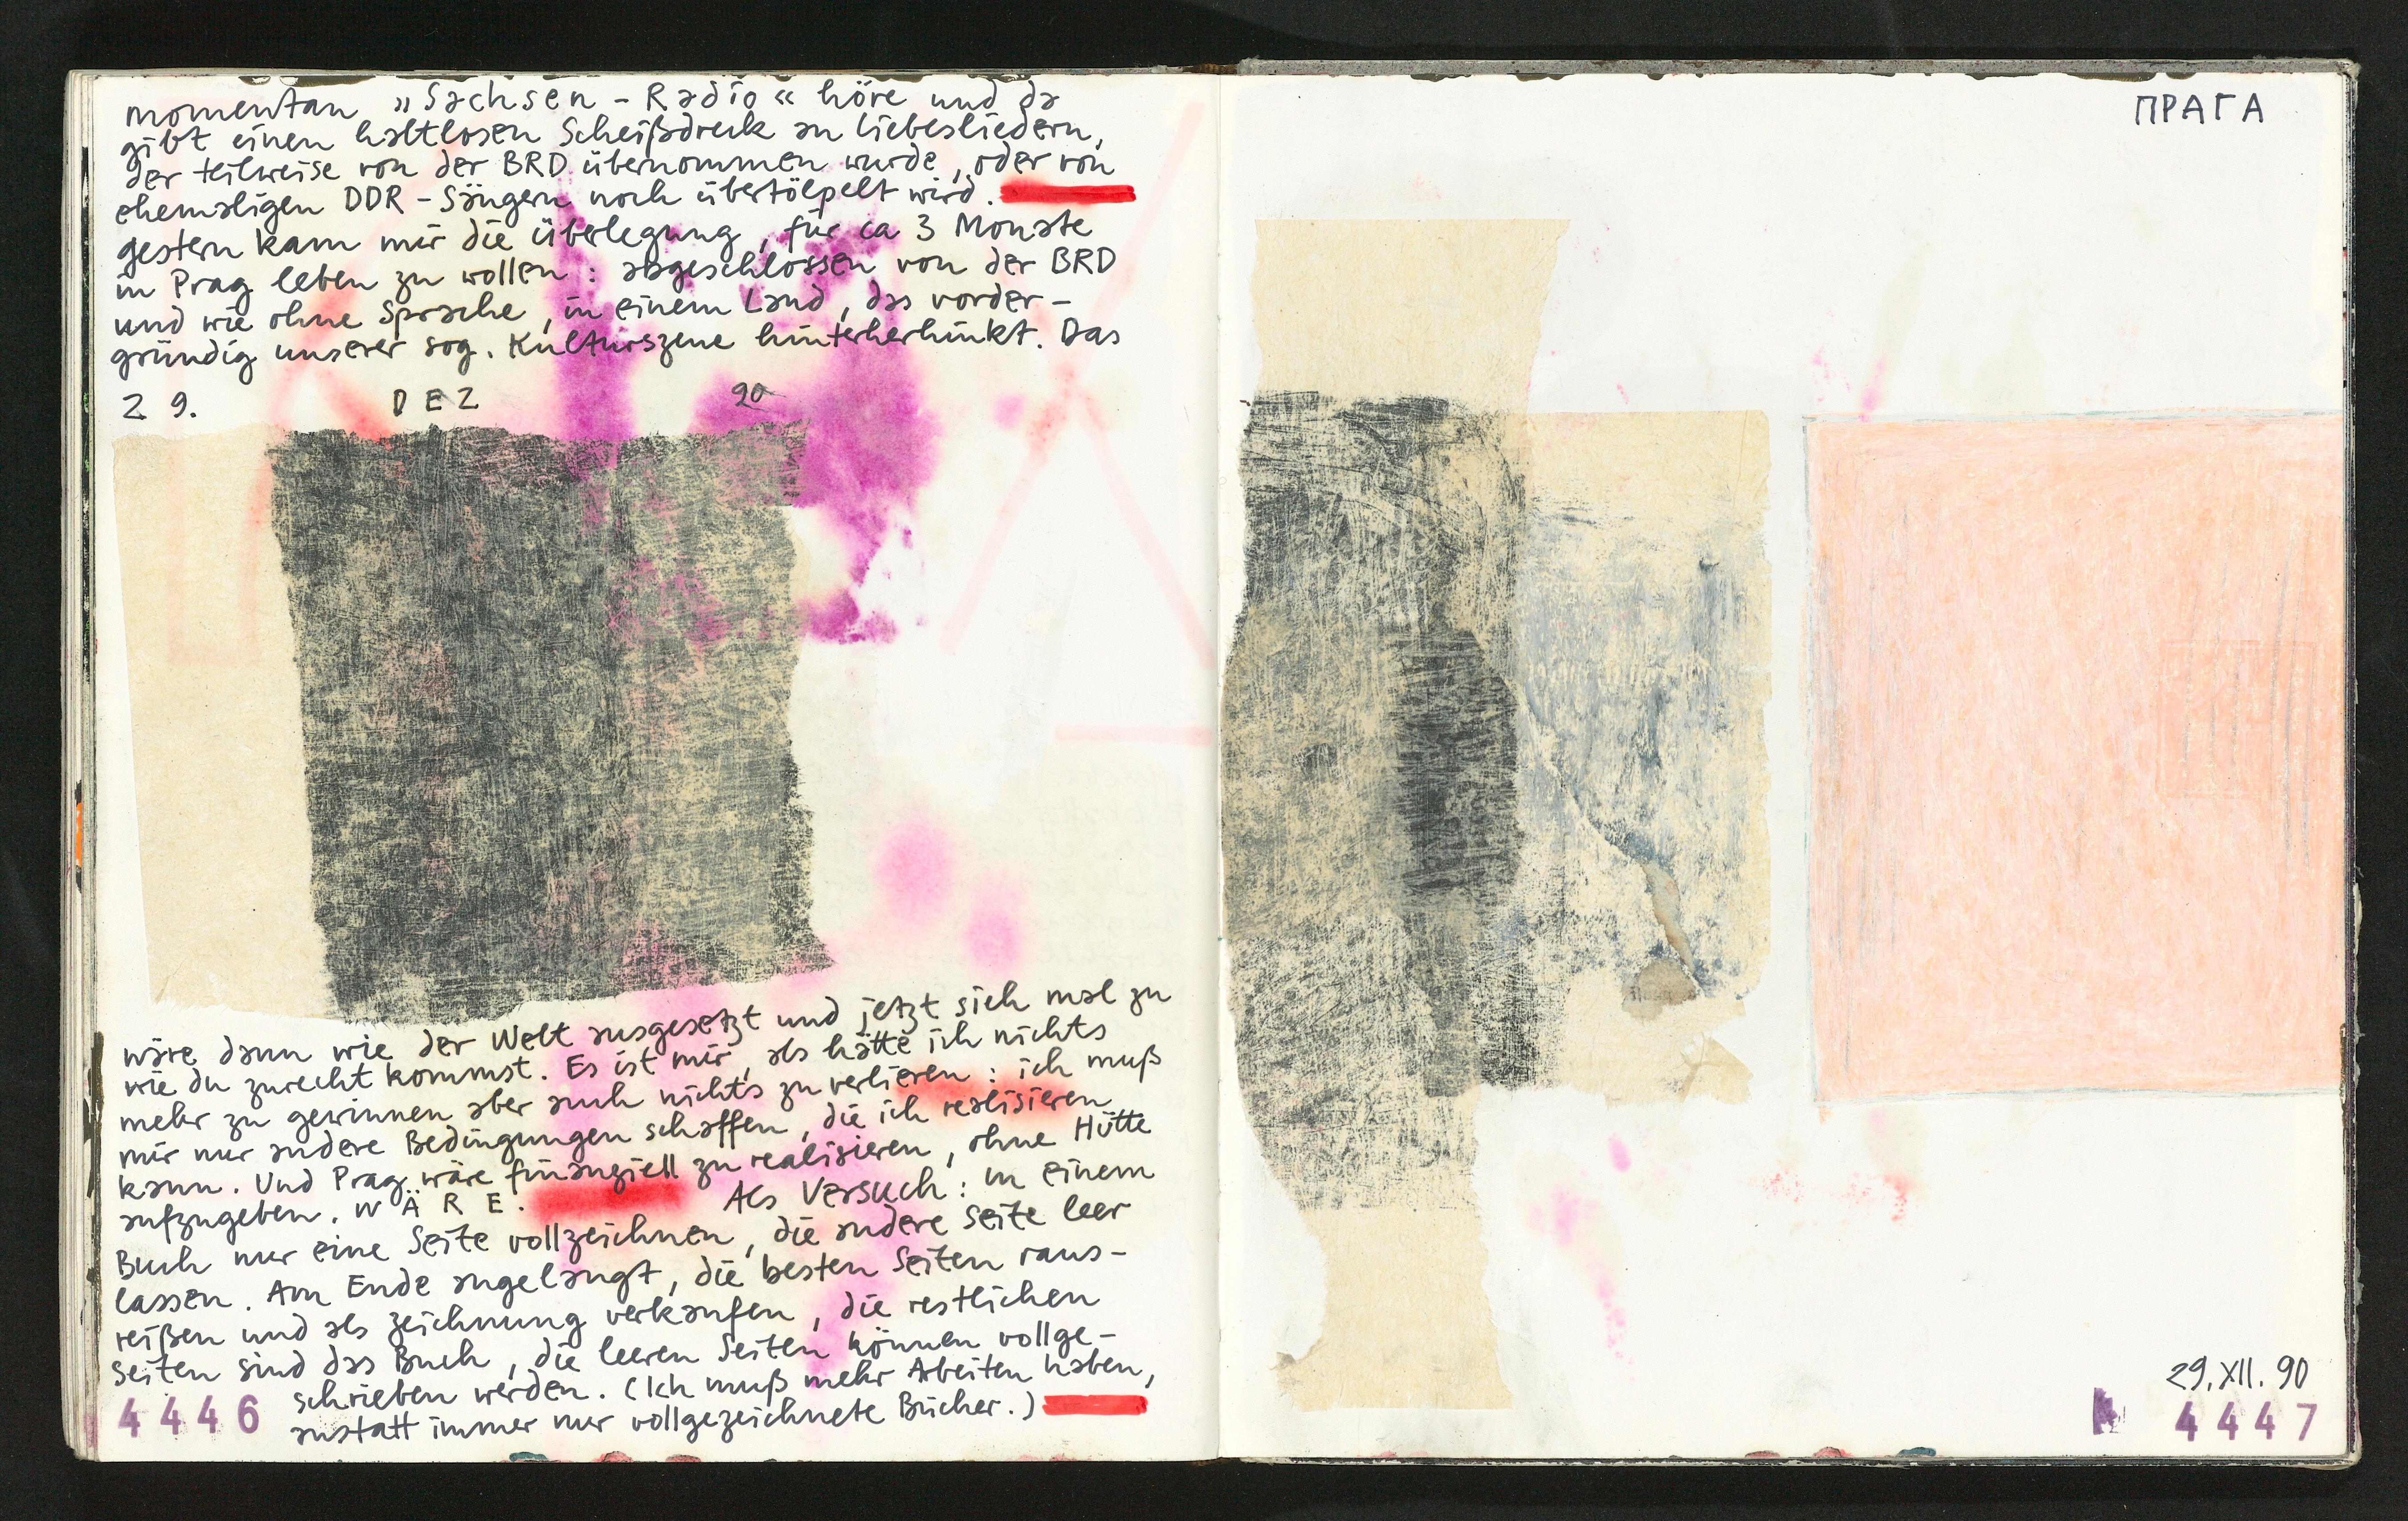 momentan »Sachsen-Radio« höre und da
gibt einen haltlosen Scheißdreck an Liebesliedern,
der teilweise von der BRD übernommen wurde, oder von
ehemaligen DDR-Sängern noch übertölpelt wird.
gestern kam mir die Überlegung, für ca 3 Monate
in Prag leben zu wollen: abgeschlossen von der BRD
und wie ohne Sprache, in einem Land, das vorder-
gründig unserer sog. Kulturszene hinterherhinkt. Das
29. DEZ 90
wäre dann wie der Welt ausgesetzt und jetzt sieh mal zu
wie du zurecht kommst. Es ist mir, als hätte ich nichts
mehr zu gewinnen aber auch nichts zu verlieren: ich muß
mir nur andere Bedingungen schaffen, die ich realisieren
kann. Und Prag wäre finanziell zu realisieren, ohne Hütte
aufzugeben. WÄRE. Als Versuch: in einem
Buch nur eine Seite vollzeichnen, die andere Seite leer
lassen. Am Ende angelangt, die besten Seiten raus-
reißen und als Zeichnung verkaufen, die restlichen
Seiten sind das Buch, die leeren Seiten können vollge-
schrieben werden. (Ich muß mehr Arbeiten haben,
anstatt immer nur vollgezeichnete Bücher.)
4446
ПРАГА
29.XII.90
4447